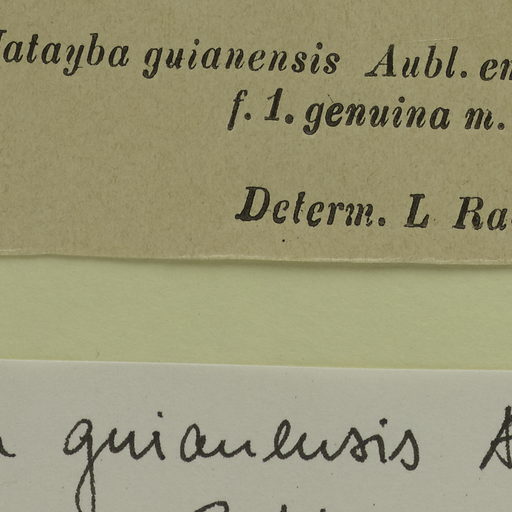 Matayba guianensis Aubl. em
f. 1. genuina m.
Determ. L Ra
guianensis A